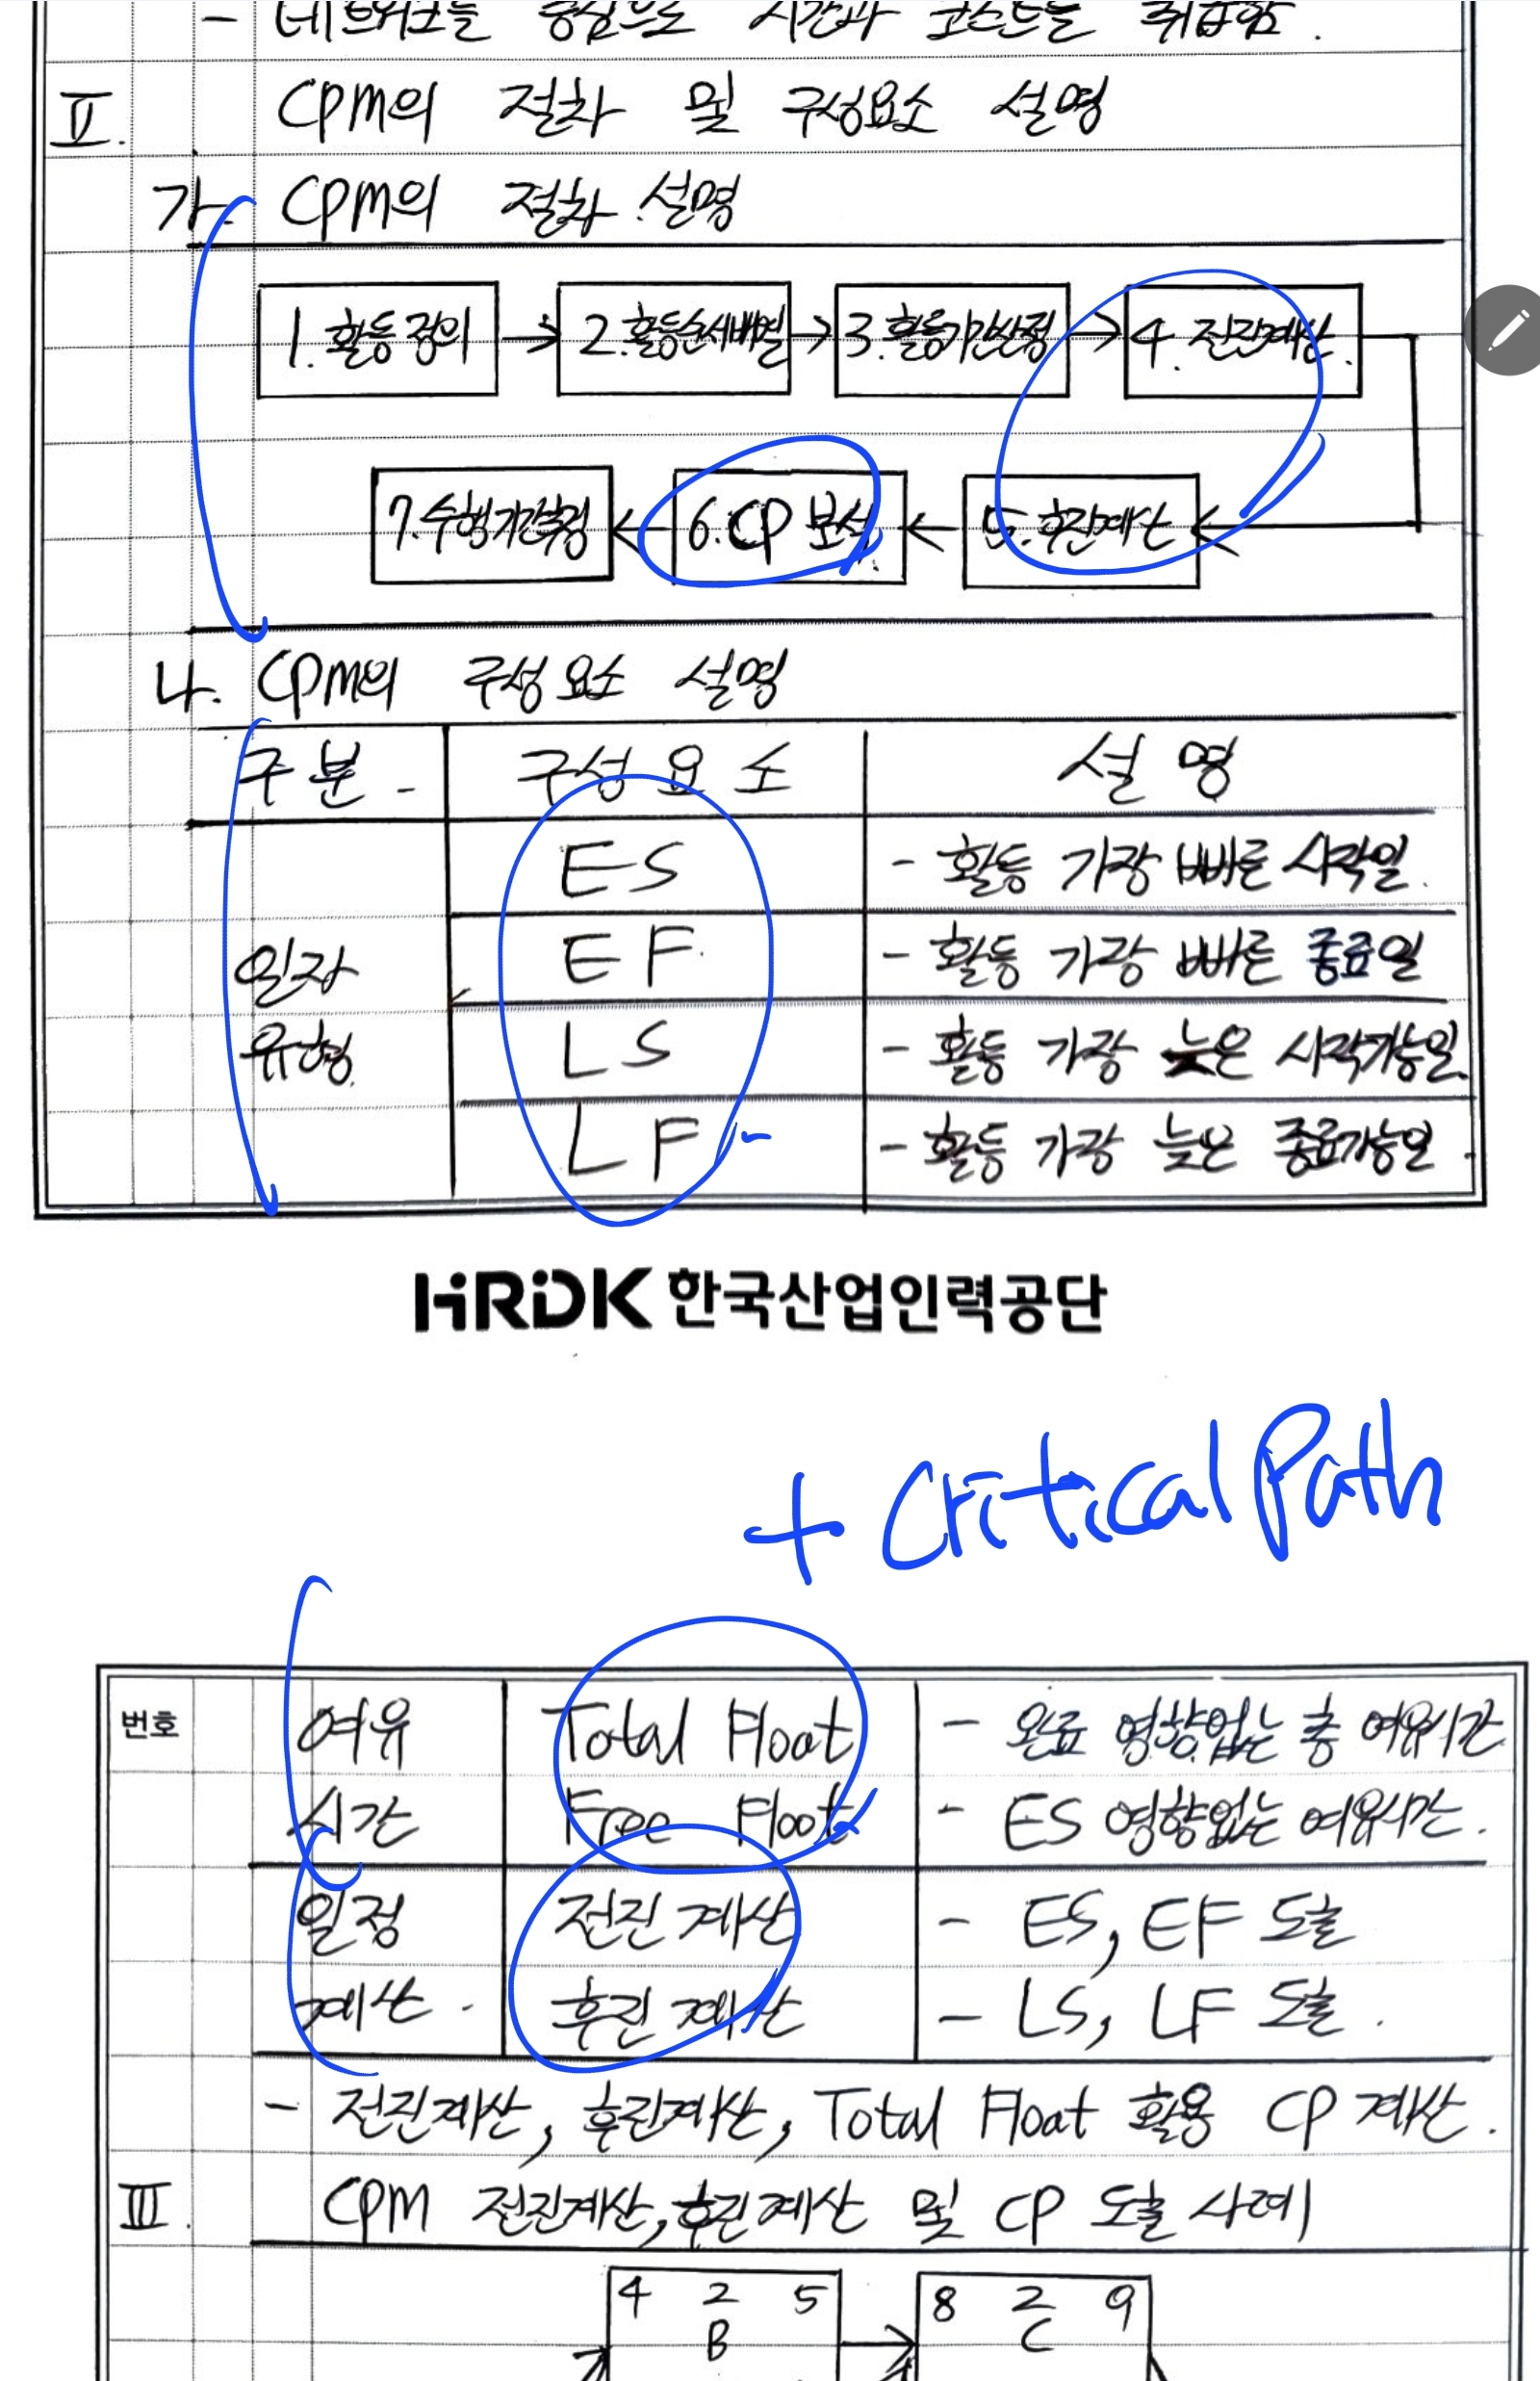 - 네트워크를 중심으로 시간과 코스트를 취급함.
Ⅱ. CPM의 절차 및 구성요소 설명
가. CPM의 절차 설명
1. 활동정의 → 2. 활동순서배열 → 3. 활동기간산정 → 4. 전진계산.
7. 수행기간추정 ← 6. CP 분석. ← 5. 후진계산
나. CPM의 구성요소 설명
구분 - 구성요소 설명
ES - 활동 가장 빠른 시작일.
일자 EF. - 활동 가장 빠른 종료일
유형 LS - 활동 가장 늦은 시작가능일.
LF - 활동 가장 늦은 종료가능일.
HRDK 한국산업인력공단
+ Critical Path
번호 여유 Total Float - 완료 영향없는 총 여유시간
시간 Free Float - ES 영향없는 여유시간.
일정 전진계산 - ES, EF 도출
계산. 후진계산 - LS, LF 도출.
- 전진계산, 후진계산, Total Float 활용 CP 계산.
Ⅲ. CPM 전진계산, 후진계산 및 CP 도출 사례
4 2 5 8 2 9
B → C